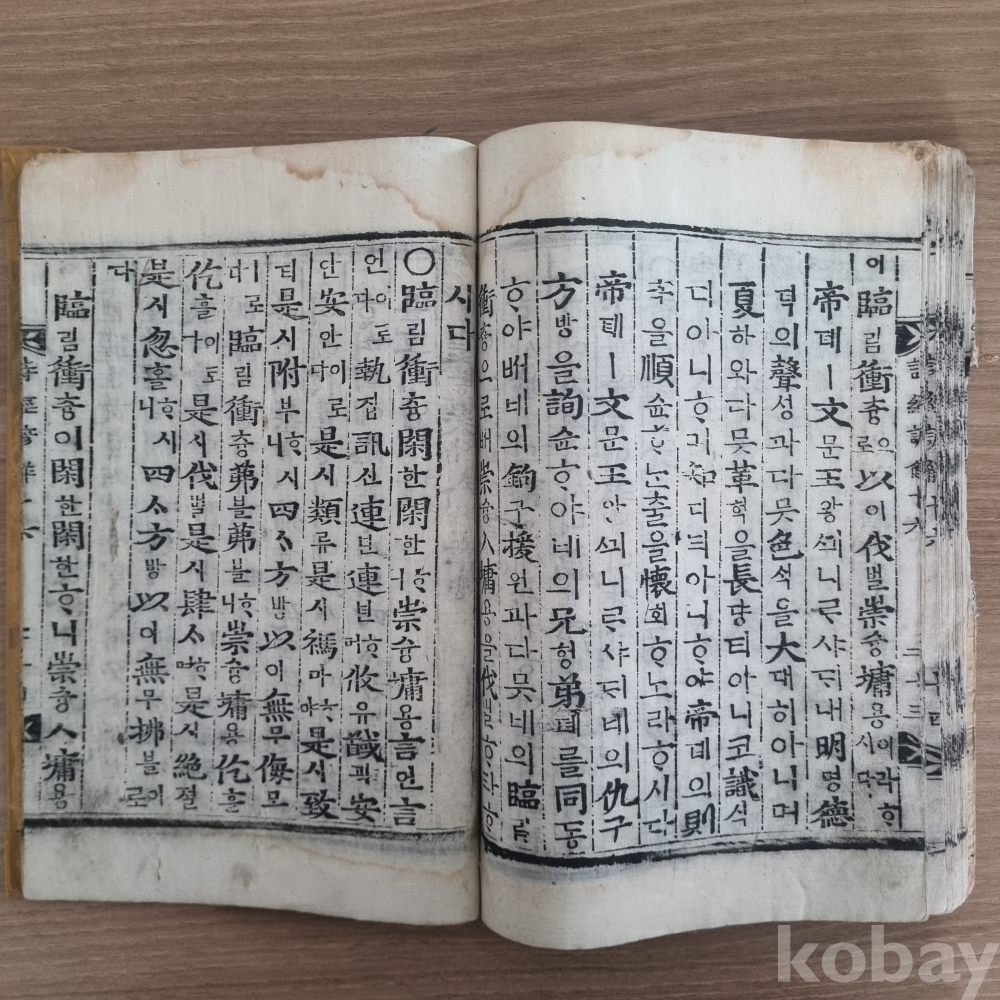 이臨림衝츙으로以이伐벌崇슝墉용이라ᄒᆞ시다
帝뎨ㅣ文문王왕ᄭᅴ니ᄅᆞ샤ᄃᆡ내明명德
덕의聲셩과다ᄆᆞᆺ色ᄉᆡᆨ을大대히아니며
夏하와다ᄆᆞᆺ革혁을長댱티아니코識식
디아니ᄒᆞ며知디티아니ᄒᆞ야帝뎨의則
측을順슌ᄒᆞᄂᆞᆫ줄을懷회ᄒᆞ노라ᄒᆞ시다
帝뎨ㅣ文문王ᄭᅴ니ᄅᆞ샤ᄃᆡ네의仇구
方방을詢슌ᄒᆞ야네의兄형弟뎨를同동
ᄒᆞ야네의鉤구援원과다ᄆᆞᆺ네의臨림
衝츙으로ᄡᅥ崇슝ㅅ墉용을伐벌ᄒᆞ라ᄒᆞ
시다
○臨림衝츙閑한閑한ᄒᆞ니崇슝墉용言언言
언이로다執집訊신連련連련ᄒᆞ며攸유馘괵安
안安안이로다是시類류是시禡마ᄒᆞ야是시致
티是시附부ᄒᆞ시니四ᄉᆞ方방以이無무侮모
ㅣ로다臨림衝츙茀블茀블ᄒᆞ니崇슝墉용仡흘
仡흘이로다是시伐벌是시肆ᄉᆞᄒᆞ며是시絶졀
是시忽홀ᄒᆞ시니四ᄉᆞ方방以이無무拂블이로
다
臨림衝츙이閑한閑한ᄒᆞ니崇슝ㅅ墉용
kobay